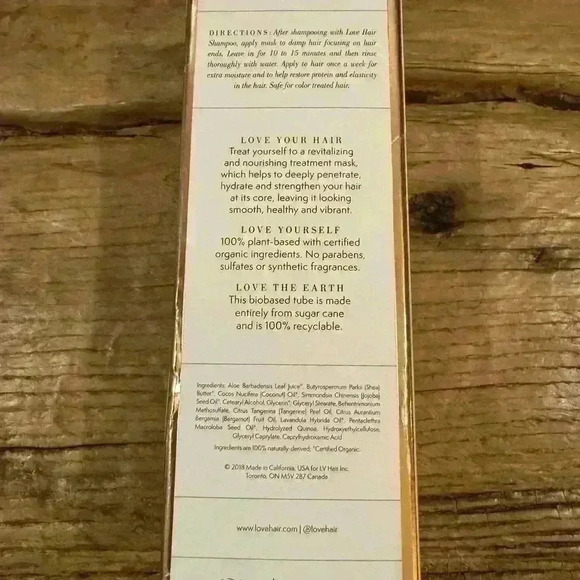 DIRECTIONS: After shampooing with Love Hair
Shampoo, apply mask to damp hair focusing on hair
ends. Leave in for 10 to 15 minutes and then rinse
thoroughly with water. Apply to hair once a week for
extra moisture and to help restore protein and elasticity
in the hair. Safe for color treated hair.
LOVE YOUR HAIR
Treat yourself to a revitalizing
and nourishing treatment mask,
which helps to deeply penetrate,
hydrate and strengthen your hair
at its core, leaving it looking
smooth, healthy and vibrant.
LOVE YOURSELF
100% plant-based with certified
organic ingredients. No parabens,
sulfates or synthetic fragrances.
LOVE THE EARTH
This biobased tube is made
entirely from sugar cane
and is 100% recyclable.
Ingredients: Aloe Barbadensis Leaf Juice*, Butyrospermum Parkii (Shea)
Butter*, Cocos Nucifera (Coconut) Oil*, Simmondsia Chinensis (Jojoba)
Seed Oil*, Cetearyl Alcohol, Glycerin*, Glyceryl Stearate, Behentrimonium
Methosulfate, Citrus Tangerina (Tangerine) Peel Oil, Citrus Aurantium
Bergamia (Bergamot) Fruit Oil, Lavandula Hybrida Oil*, Pentaclethra
Macroloba Seed Oil*, Hydrolyzed Quinoa, Hydroxyethylcellulose,
Glyceryl Caprylate, Caprylhydroxamic Acid
Ingredients are 100% naturally-derived; *Certified Organic.
© 2018 Made in California, USA for LV Hair Inc.
Toronto, ON M5V 2B7 Canada
www.lovehair.com | @lovehair